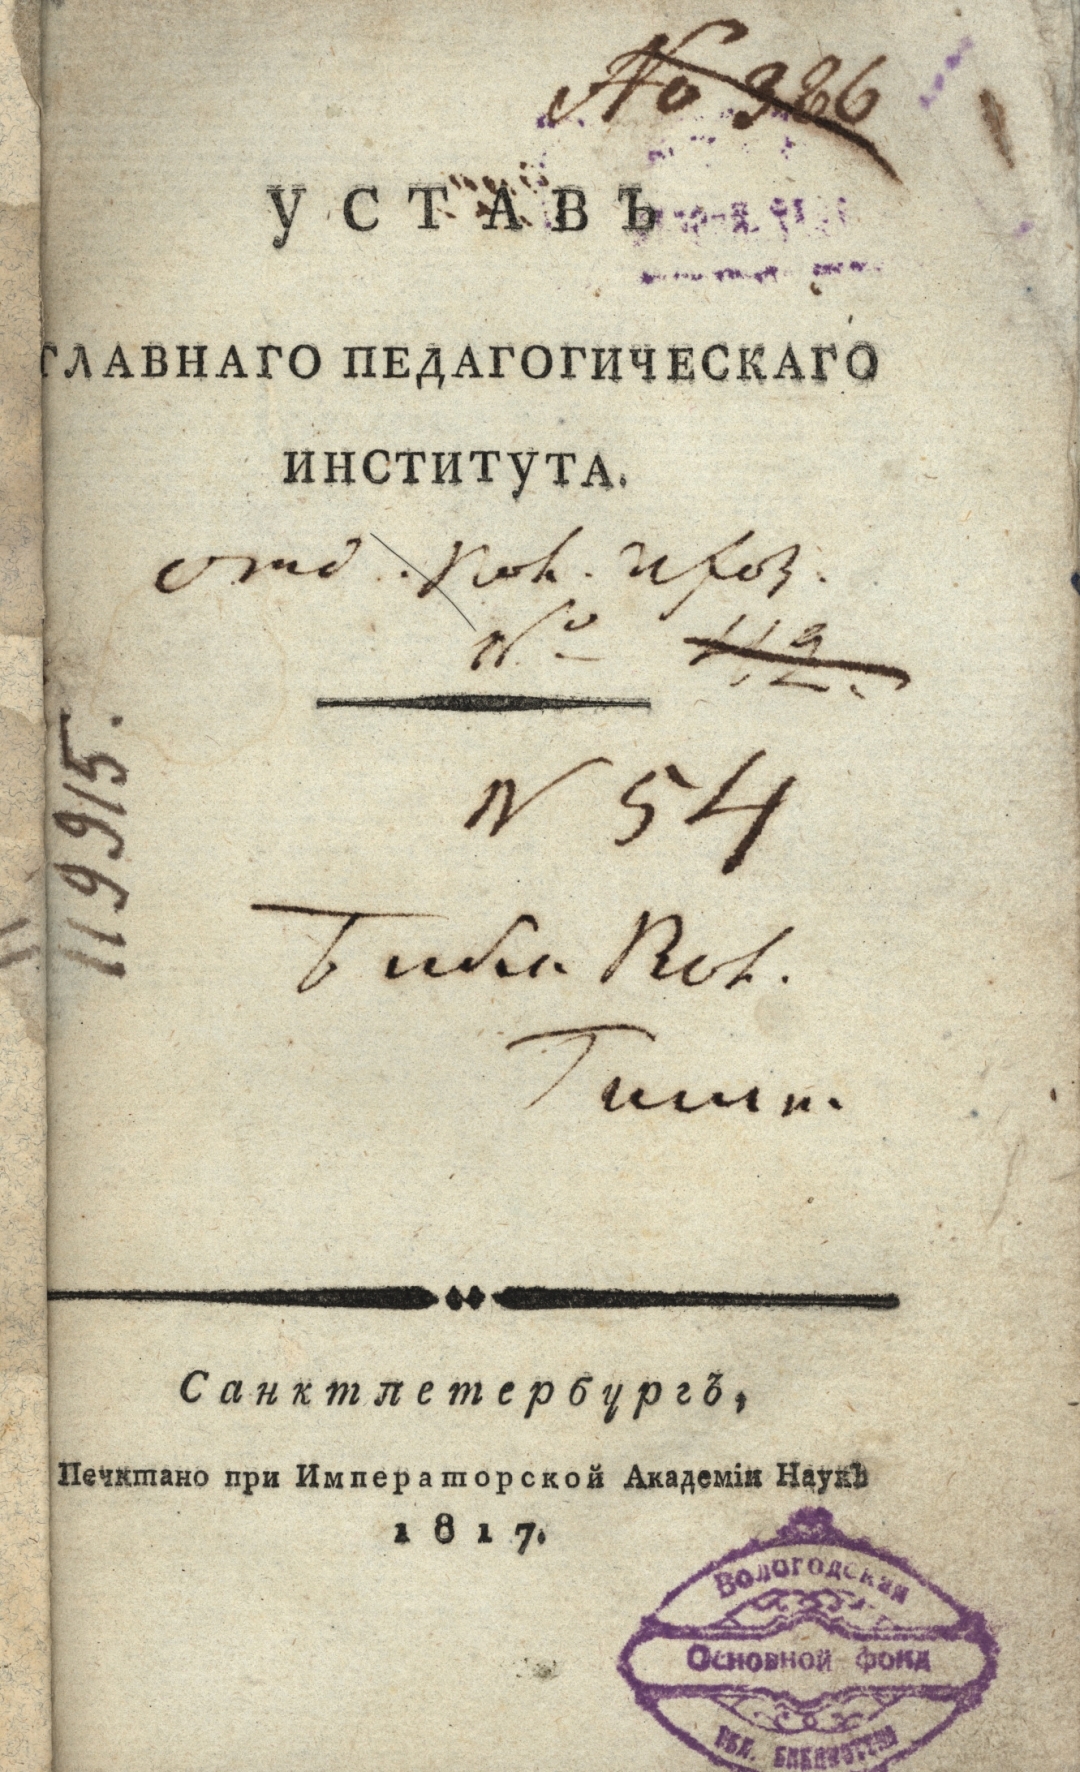 No 386
УСТАВЪ
ГЛАВНАГО ПЕДАГОГИЧЕСКАГО
ИНСТИТУТА.
отд.
№ 112.
11995.
N 54
Библ.
Гимн.
Санктпетербургъ,
Печатано при Императорской Академіи Наукъ
1817.
Вологодская
Основной фонд
обл. библиотека